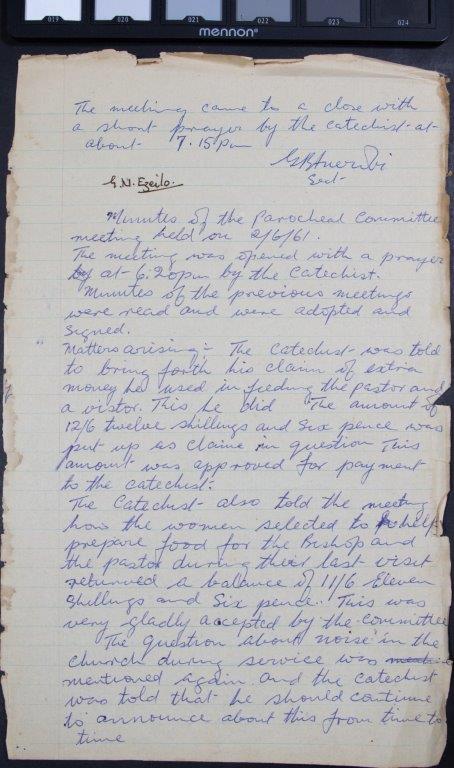 019 020 021 022 023 024
mennon
The meeting came to a close with
a short prayer by the catechist at
about 7.15pm
Sect
G.N. Ezeilo.
Minutes of the Parocheal Committee
meeting held on 2/6/61.
The meeting was opened with a prayer
by at 6:20pm by the Catechist.
Minutes of the previous meetings
were read and were adopted and
signed.
Matters arising:- The Catechist was told
to bring forth his claim of extra
money he used in feeding the pastor and
a vistor. This he did The amount of
12/6 twelve shillings and Six pence was
put up as claime in question This
amount was approved for payment
to the catechist.
The Catechist also told the meeting
how the women selected to help
prepare food for the Bishop and
the pastor during their last visit
returned a balance of 11/6 Eleven
Shillings and Six pence. This was
very gladly accepted by the committee
The question about noise in the
church during service was
mentioned again and the catechist
was told that he should continue
to announce about this from time to
time